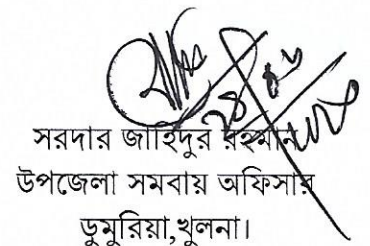 সরদার জাহিদুর রহমান
উপজেলা সমবায় অফিসার
ডুমুরিয়া,খুলনা।